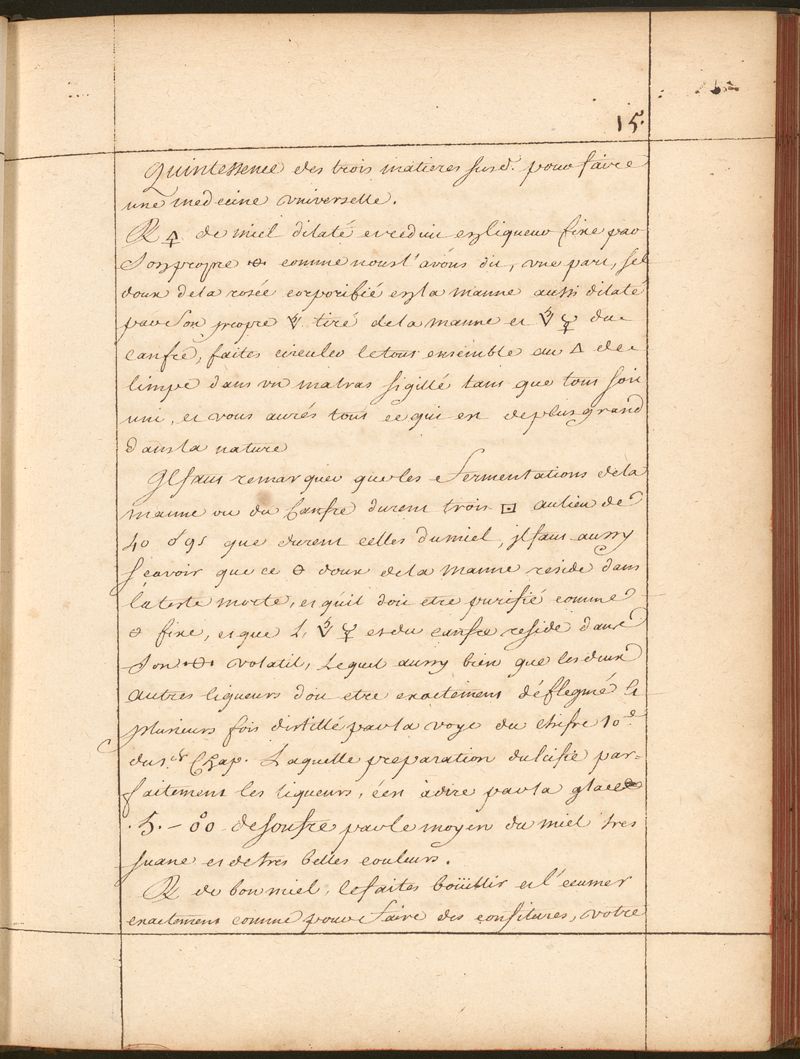 15.
Quintessence des trois matieres susd. pour faire
une medecine universelle.
℞ 🜍 de miel dilaté et reduit en liqueur fixe par
son propre 🜔 comme nous l'avons dit, une part, sel
doux de la rosée corporifié en la manne aussi dilaté
par son propre tiré de la manne et du
canfre, faites circuler le tout ensemble au 🜂 de
limpe dans un matras sigillé tant que tout soit
uni, et vous aurés tout ce qui est de plus grand
dans la nature
Il faut remarquer que les Fermentations de la
manne ou du Canfre durent trois ⊡ au lieu de
40 que durent celles du miel, il faut aussy
sçavoir que ce 🜔 doux de la manne reside dans
la teste morte, et qu'il doit etre purifié comme
🜔 fixe, et que L. est du canfre reside dans
son 🜔 volatil, Lequel aussy bien que les deux
autres liqueurs doit etre exactement déflegmé et
plusieurs fois distillé par la voye du chifre 10.e
du s.dr Chap. Laquelle preparation dulcifie par-
faitement les liqueurs, c'en à dire par la glace
.5. – de soufre par le moyen du miel tres
suave et de tres belles couleurs.
℞ de bon miel, le faites boüillir et l'ecumer
exactement comme pour faire des confitures, votre